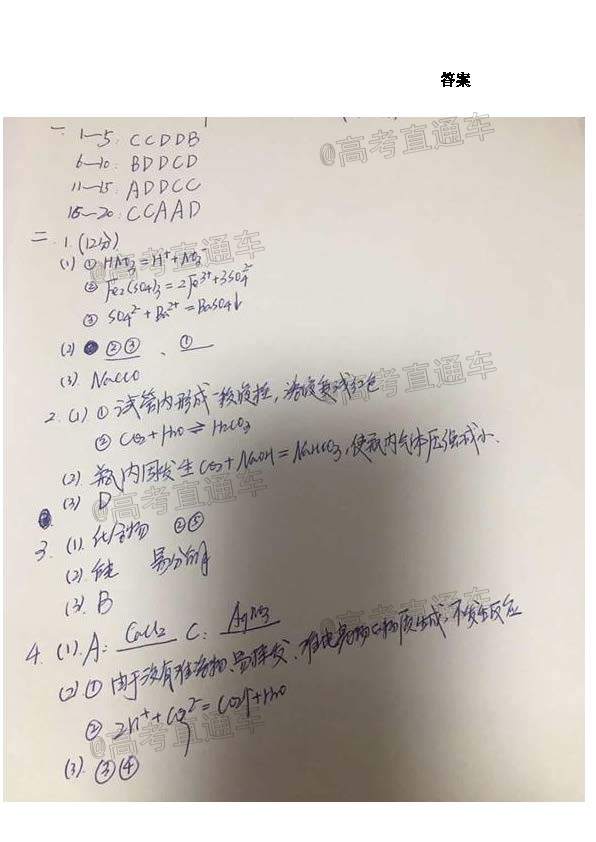 答案
@高考直通车
一 1—5: C C D D B
6—10: B D D C D
11—15: A D D C C
16—20: C C A A D
二 1. (12分)
@高考直通车
(1) ① HNO3 = H⁺ + NO3⁻
② Fe2(SO4)3 = 2Fe³⁺ + 3SO4²⁻
③ SO4²⁻ + Ba²⁺ = BaSO4↓
(2) ②③ 、 ①
(3) NaClO
@高考直通车
2. (1) ① 试管内形成一段液柱,溶液变浅红色
② CO2 + H2O ⇌ H2CO3
(2) 瓶内因发生CO2 + NaOH = NaHCO3,使瓶内气体压强减小.
(3) D
@高考直通车
3. (1). 化合物 ②⑤
(2). 能 易分解
(3). B
@高考直通车
4. (1). A: CaCl2 C: AgNO3
(2) ① 由于没有难溶物、易挥发、难电离的物质生成,不发生反应
② 2H⁺ + CO3²⁻ = CO2↑ + H2O
@高考直通车
(3). ③④